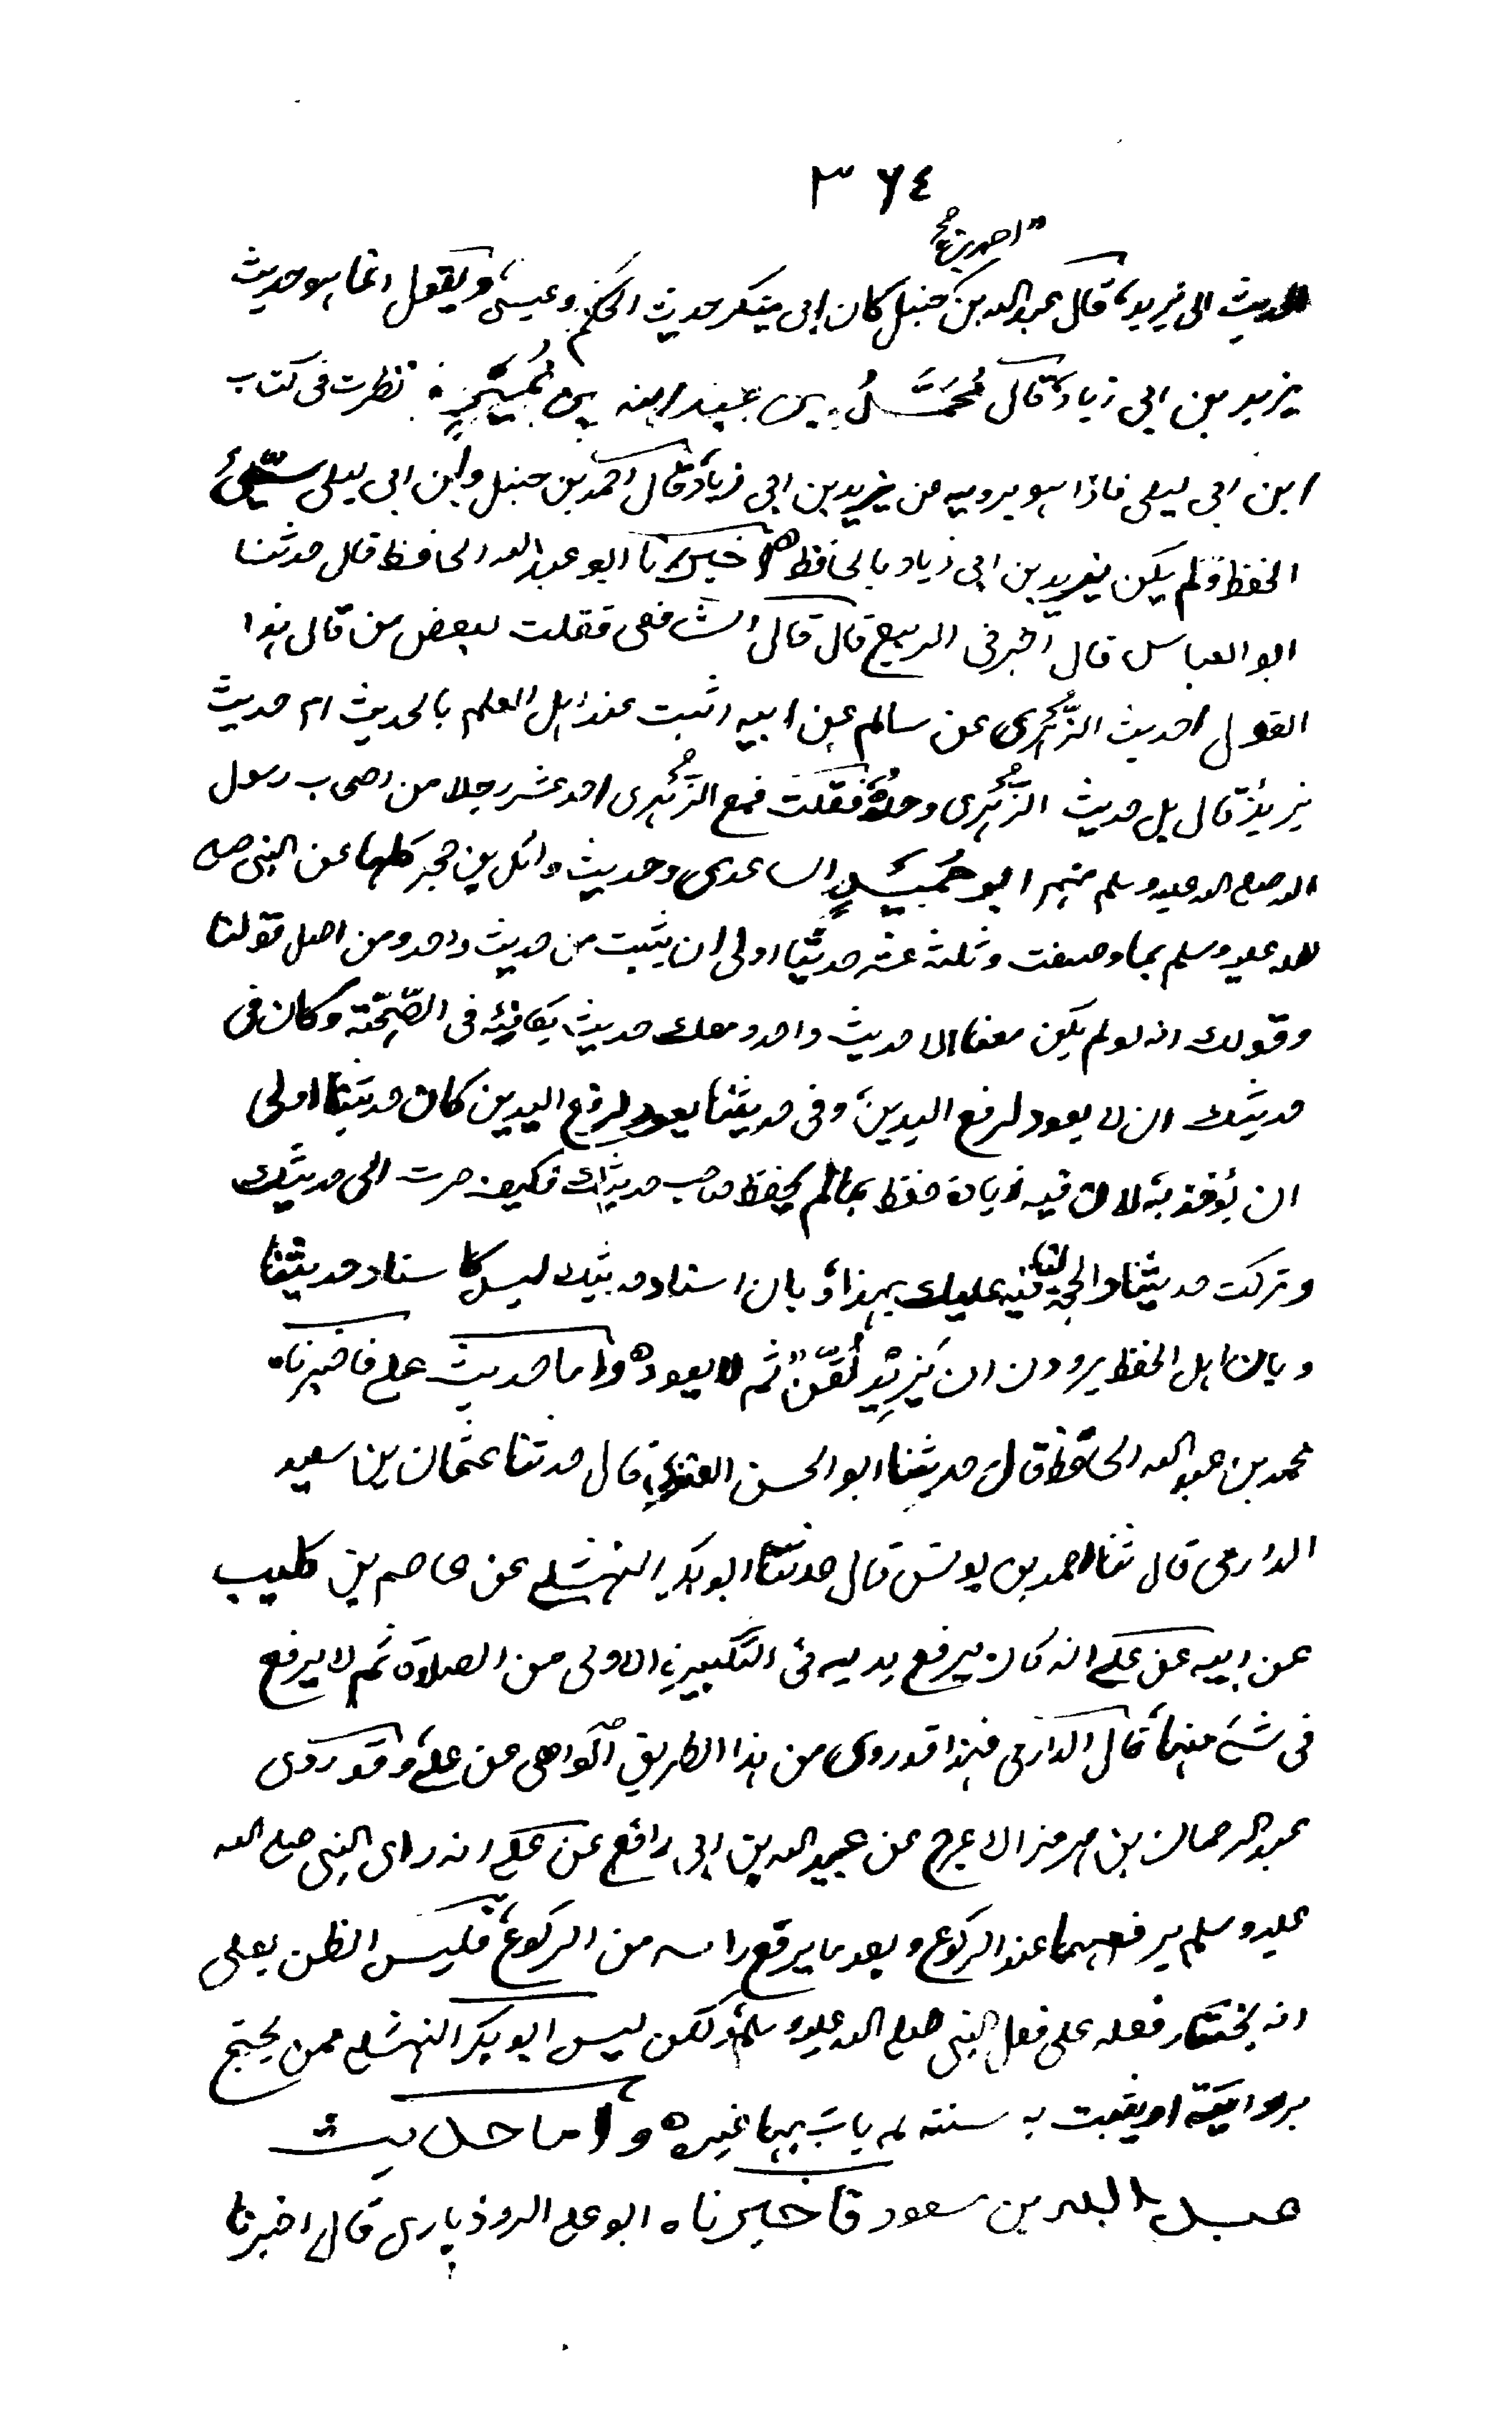 ٣٦٤
احمد بن
الحديث الى يزيد، قال عبد الله بن حنبل كان ابى ينكر حديث الحكم وعيسى ويقول انما هو حديث
يزيد بن ابي زياد قال محمد بن عبد الله بن نمير نظرت فى كتاب
ابن ابي ليلى فاذا هو يرويه عن يزيد بن ابي زياد قال احمد بن حنبل وابن ابى ليلى سيئ
الحفظ ولم يكن يزيد بن ابي زياد بالحافظ ه اخبرنا ابو عبد الله الحافظ قال حدثنا
ابو العباس قال اخبرنى الربيع قال قال الشافعى فقلت لبعض من قال هذا
القول احديث الزُّهْرى عن سالم عن ابيه اثبت عند اهل العلم بالحديث ام حديث
يزيد قال بل حديث الزُّهْرى وحده فقلت فمع الزُّهْرى احد عشر رجلا من اصحاب رسول
الله صلى الله عليه وسلم منهم ابو حُمَيدٍ الساعدى وحديث وائل بن حجر كلها عن النبى صلى
الله عليه وسلم بما وصفت وثلثة عشر حديثا اولى ان يثبت من حديث واحد ومن اصل قولنا
وقولك انه لو لم يكن معنا الا حديث واحد ومعك حديث يكافئه فى الصِّحَّة وكان فى
حديثك ان لا يعود لرفع اليدين، وفى حديثنا يعود لرفع اليدين كان حديثنا اولى
ان يؤخذ به لان فيه زيادة حفظ بما لم يحفظ صاحب حديثك فكيف صرت الى حديثك
وتركت حديثنا والحجة لنا فيه عليك بهذا وبان اسناد حديثك ليس كاسناد حديثنا
وبان اهل الحفظ يروون ان يَزِيْد لُقّن "ثم لا يعود" ه واما حديث على فاخبرناه
محمد بن عبد الله الحافظ قال حدثنا ابو الحسن العنزى قال حدثنا عثمان بن سعيد
الدارمى قال ثنا احمد بن يونس قال حدثنا ابو بكر النهشلى عن عاصم بن كليب
عن ابيه عن على انه كان يرفع يديه فى التكبيرة الاولى من الصلاة ثم لا يرفع
فى شئ منها قال الدارمى فهذا قد روى من هذا الطريق الواهى عن على وقد روى
عبد الرحمان بن هرمز الاعرج عن عبيد الله بن ابى رافع عن على انه راى النبى صلى الله
عليه وسلم يرفعهما عند الركوع وبعد ما يرفع راسه من الركوع، فليس الظن بعلى
انه يختار فعله على فعل النبى صلى الله عليه وسلم ولكن ليس ابو بكر النهشلى ممن يحتج
بروايته او يثبت به سنته لم يات بها غيره ه واما حديث
عبد الله بن مسعود فاخبرناه ابو على الروذبارى قال اخبرنا